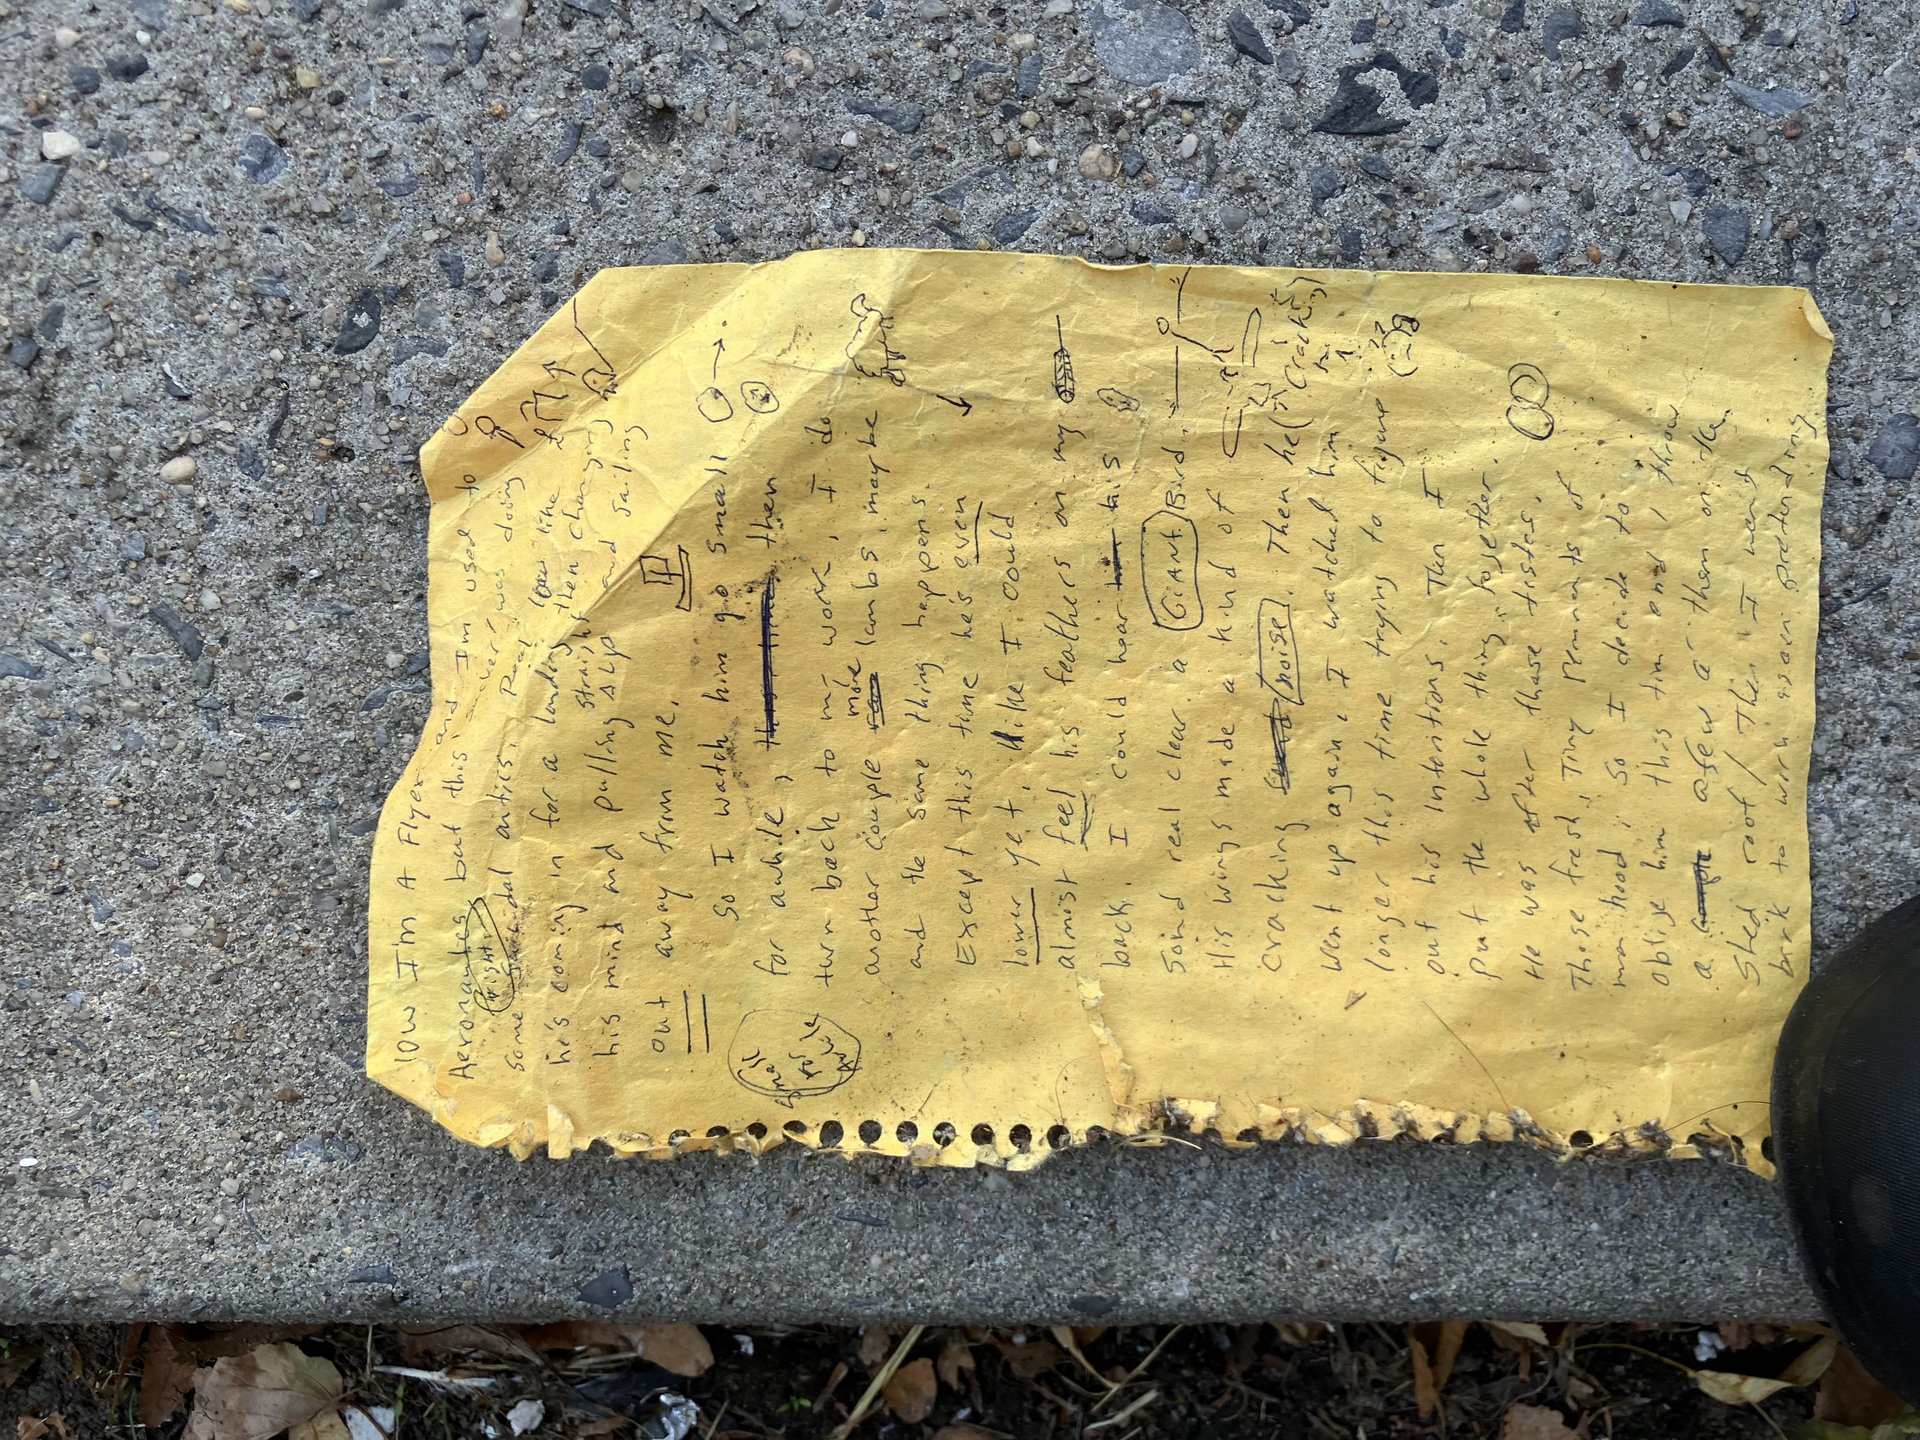 now I'm A Flyer and I'm used to
Aeronautics but this was doing
some suicidal antics. Real low like
he's coming in for a landing then changing
straight
his mind and pulling Up and sailing
out away from me.
So I watch him go small
for awhile, then
turn back to my work, I do
more
another couple lambs, maybe
and the same thing happens.
Except this time he's even
lower yet. like I could
almost feel his feathers on my
back. I could hear his
Sond real clear, a GIANT Bird.
His wings made a kind of
cracking noise. Then he
(Cracking)
went up again. I watched him
longer this time trying to figure
out his Intentions. Then I
put the whole thing together.
He was after those tistes.
Those fresh, Tiny remnants of
man hood. So I decide to
oblige him this time and I throw
a few a them on the
Shed roof / Then I went
back to work again pretending
Small